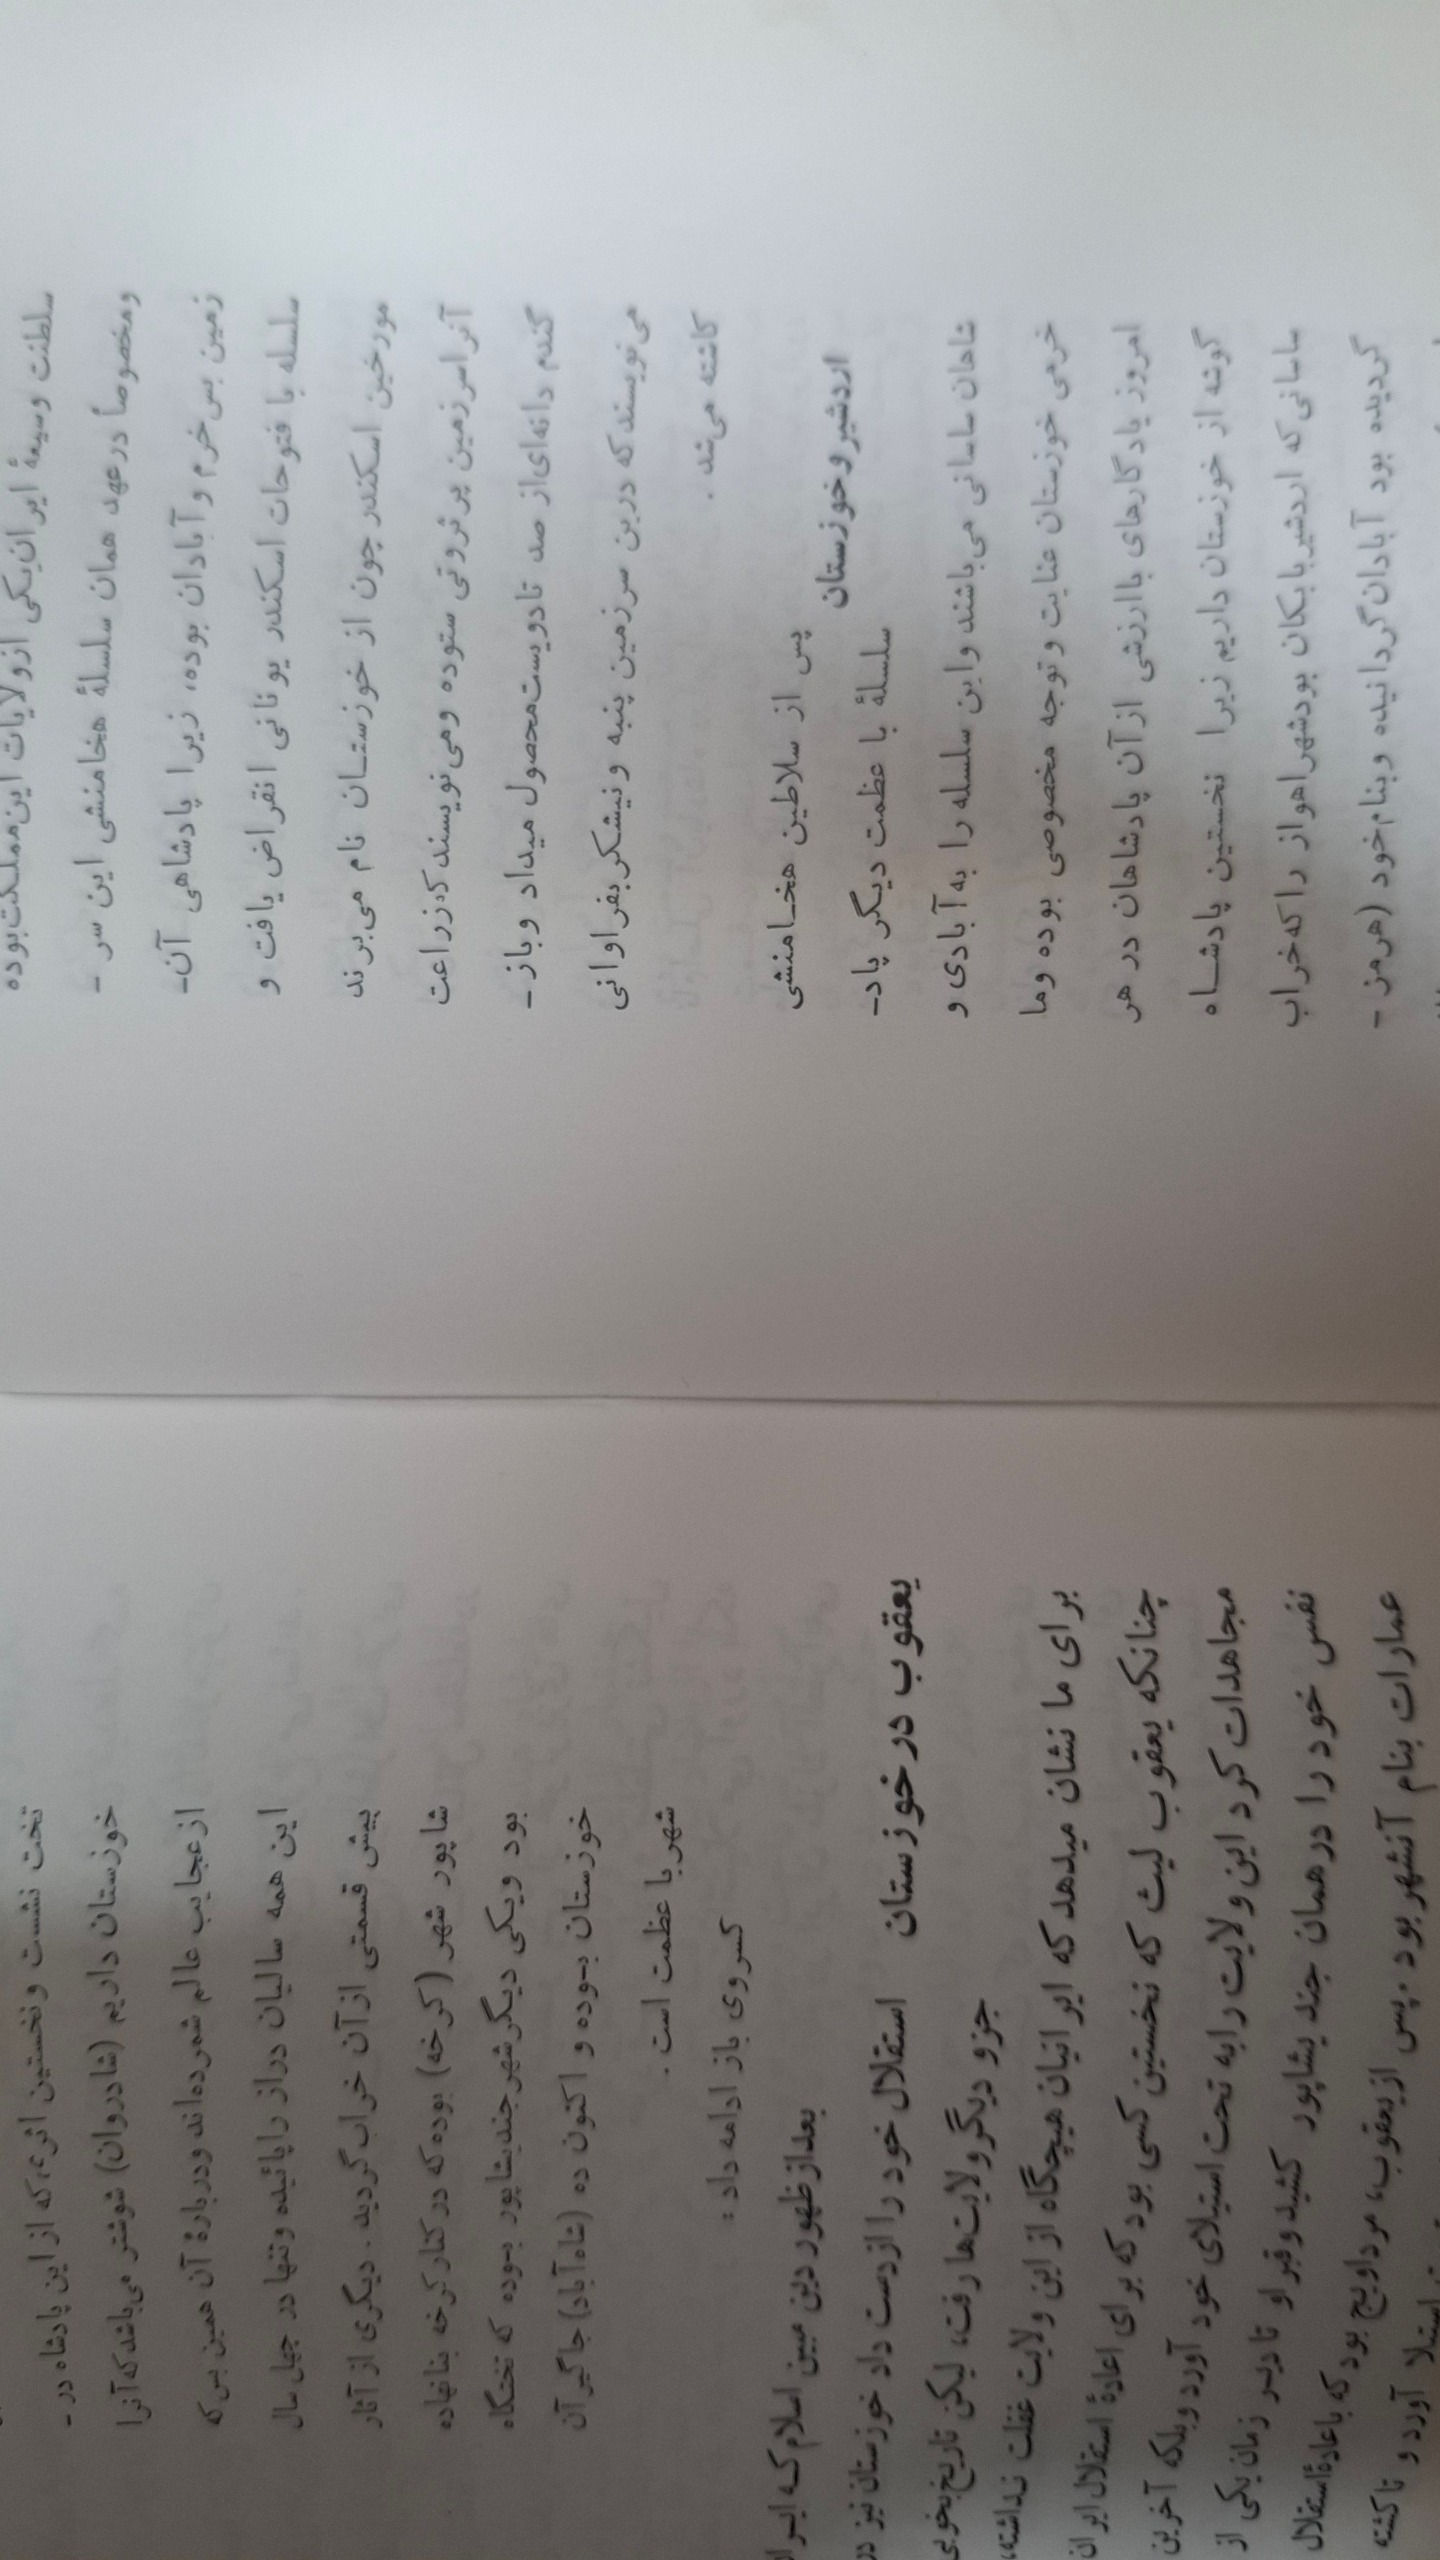 سلطنت وسیعهٔ ایران یکی ازولایات این مملکت بوده
ومخصوصاً در عهد همان سلسلهٔ هخامنشی این سر -
زمین بس خرم و آبادان بوده، زیرا پادشاهی آن-
سلسله با فتوحات اسکندر یونانی انقراض یافت و
مورخین اسکندر چون از خوزستان نام می‌برند
آنرا سرزمین پرثروتی ستوده ومی‌نویسند که زراعت
گندم دانه‌ای از صد تا دویست محصول میداد وباز -
می‌نویسند که درین سرزمین پنبه ونیشکر بفراوانی
کاشته می‌شد .
اردشیر و خوزستان
پس از سلاطین هخامنشی
سلسلهٔ با عظمت دیگر پاد-
شاهان ساسانی می‌باشند واین سلسله را به آبادی و
خرمی خوزستان عنایت و توجه مخصوصی بوده وما
امروز یادگارهای باارزشی از آن پادشاهان در هر
گوشه از خوزستان داریم زیرا نخستین پادشاه
ساسانی که اردشیر بابکان بود شهر اهواز را که خراب
گردیده بود آبادان گردانیده وبنام خود (هرمز -
تخت نشست و نخستین اثری که از این پادشاه در -
خوزستان داریم (شادروان) شوشتر می‌باشد که آنرا
از عجایب عالم شمرده‌اند ودرباره‌ٔ آن همین بس که
این همه سالیان دراز را پائیده وتنها در چهل سال
پیش قسمتی از آن خراب گردید . دیگری از آثار
شاپور شهر (کرخه) بوده که در کنار کرخه بنا نهاده
بود ویکی دیگر شهر جندیشاپور بوده که تختگاه
خوزستان بوده و اکنون ده (شاه آباد) جاگیر آن
شهر با عظمت است .
کسروی باز ادامه داد :
یعقوب در خوزستان
بعداز ظهور دین مبین اسلام که ایرا
استقلال خود را ازدست داد خوزستان نیز در
جزو دیگر ولایت‌ها رفت، لیکن تاریخ بخوبی
برای ما نشان میدهد که ایرانیان هیچگاه از این ولایت غفلت نداشته،
چنانکه یعقوب لیث که نخستین کسی بود که برای اعادهٔ استقلال ایران
مجاهدات کرد این ولایت را به تحت استیلای خود آورد وبلکه آخرین
نفس خود را در همان جندیشاپور کشید وقبر او تا دیر زمان یکی از
عمارات بنام آنشهر بود . پس ازیعقوب، مرداویج بود که باعادهٔ استقلال
استیلا آورد و تا کشته